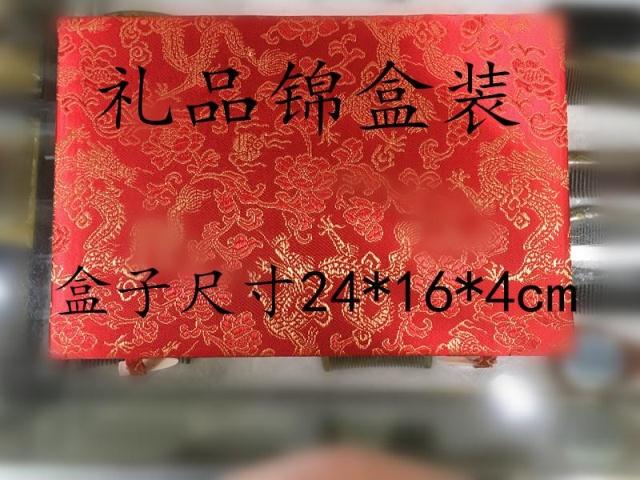 礼品锦盒装
盒子尺寸24*16*4cm